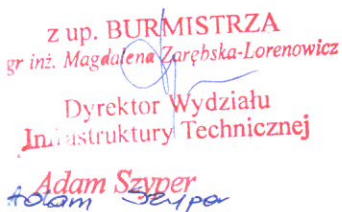 z up. BURMISTRZA
gr inż. Magdalena Zarębska-Lorenowicz
Dyrektor Wydziału
Infrastruktury Technicznej
Adam Szyper
Adam Szyper